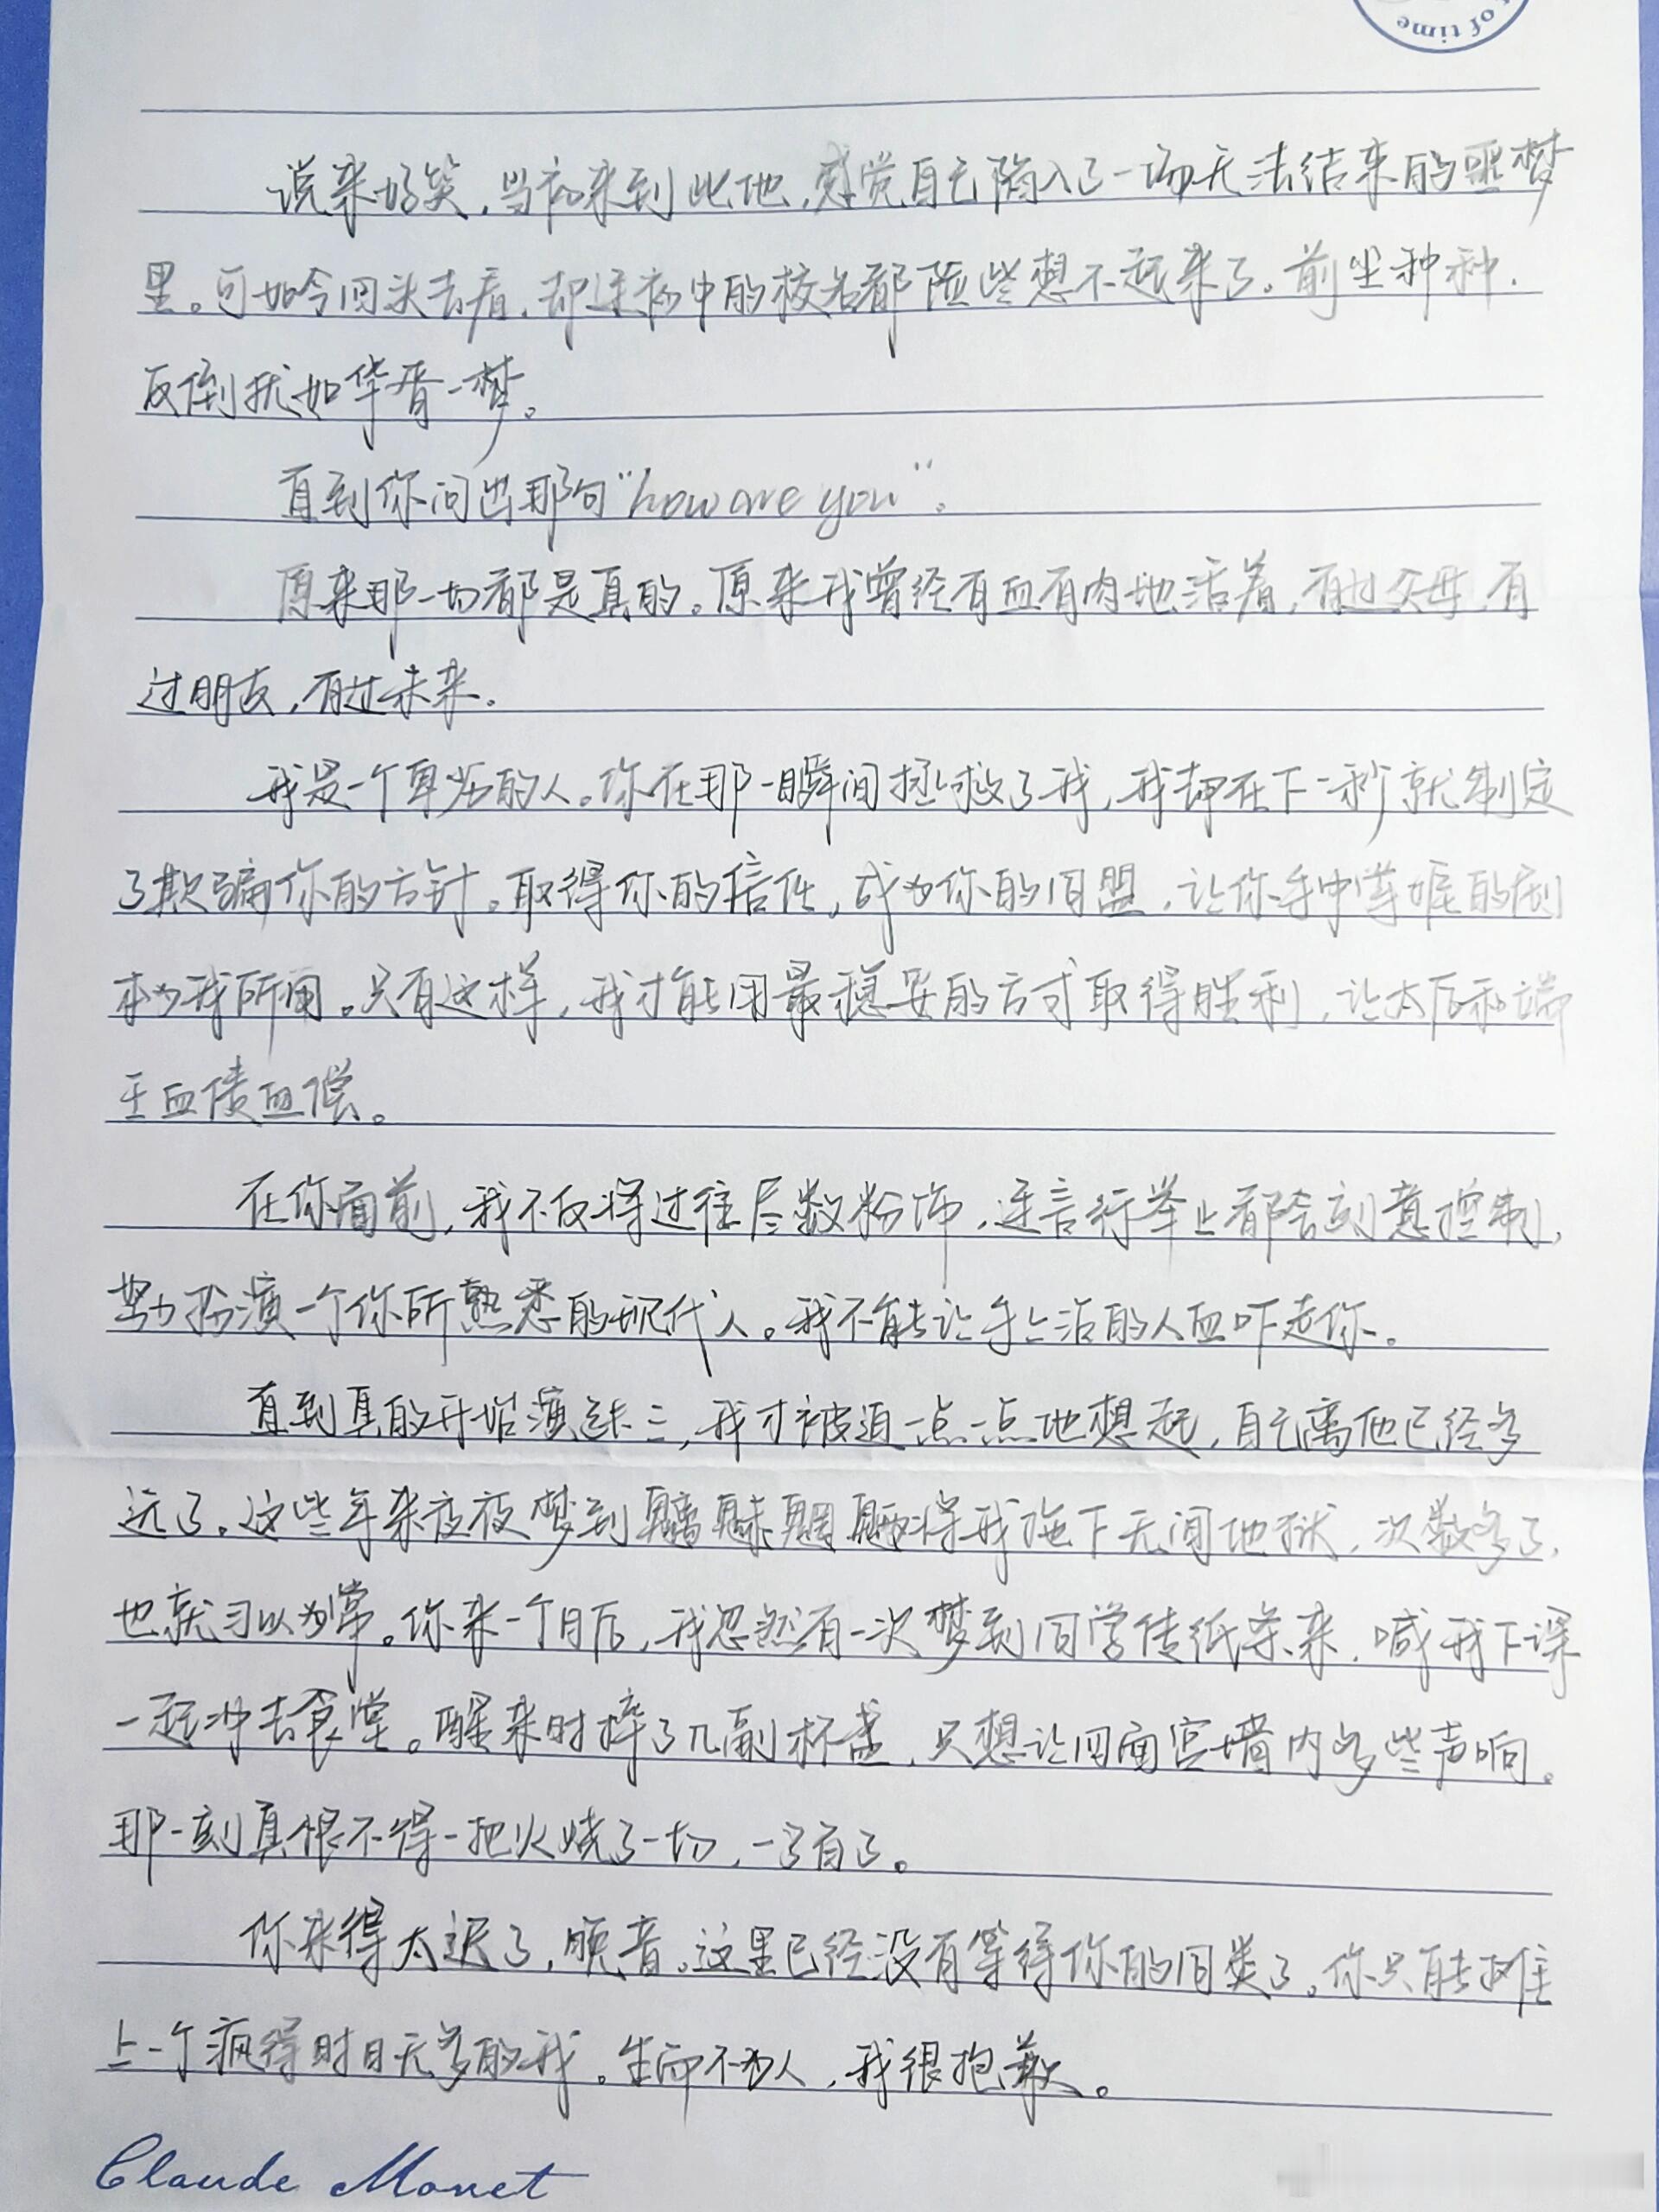 of time
说来好笑，当初来到此地，感觉自己陷入了一场无法结束的噩梦
里。可如今回头去看，却连初中的校名都险些想不起来了。前尘种种，
反倒犹如华胥一梦。
直到你问出那句“how are you”。
原来那一切都是真的。原来我曾经有血有肉地活着，有过父母，有
过朋友，有过未来。
我是一个卑劣的人。你在那一瞬间拯救了我，我却在下一秒就制定
了欺骗你的方针。取得你的信任，成为你的同盟，让你手中掌握的剧
本为我所用。只有这样，我才能用最稳妥的方式取得胜利，让太后和端
王血债血偿。
在你面前，我不仅将过往尽数粉饰，连言行举止都会刻意控制，
努力扮演一个你所熟悉的现代人。我不能让手上沾的人血吓走你。
直到真的开始演张三，我才被迫一点一点地想起，自己离他已经多
远了。这些年来夜夜梦到魑魅魍魉将我拖下无间地狱，次数多了，
也就习以为常。你来一个月后，我忽然有一次梦到同学传纸条来，喊我下课
一起冲去食堂。醒来时摔了几副杯盏，只想让四面宫墙内多些声响。
那一刻真恨不得一把火烧了一切，一了百了。
你来得太迟了，晚音。这里已经没有等待你的同类了。你只能摊
上一个疯得时日无多的我。生而不为人，我很抱歉。
Claude Monet